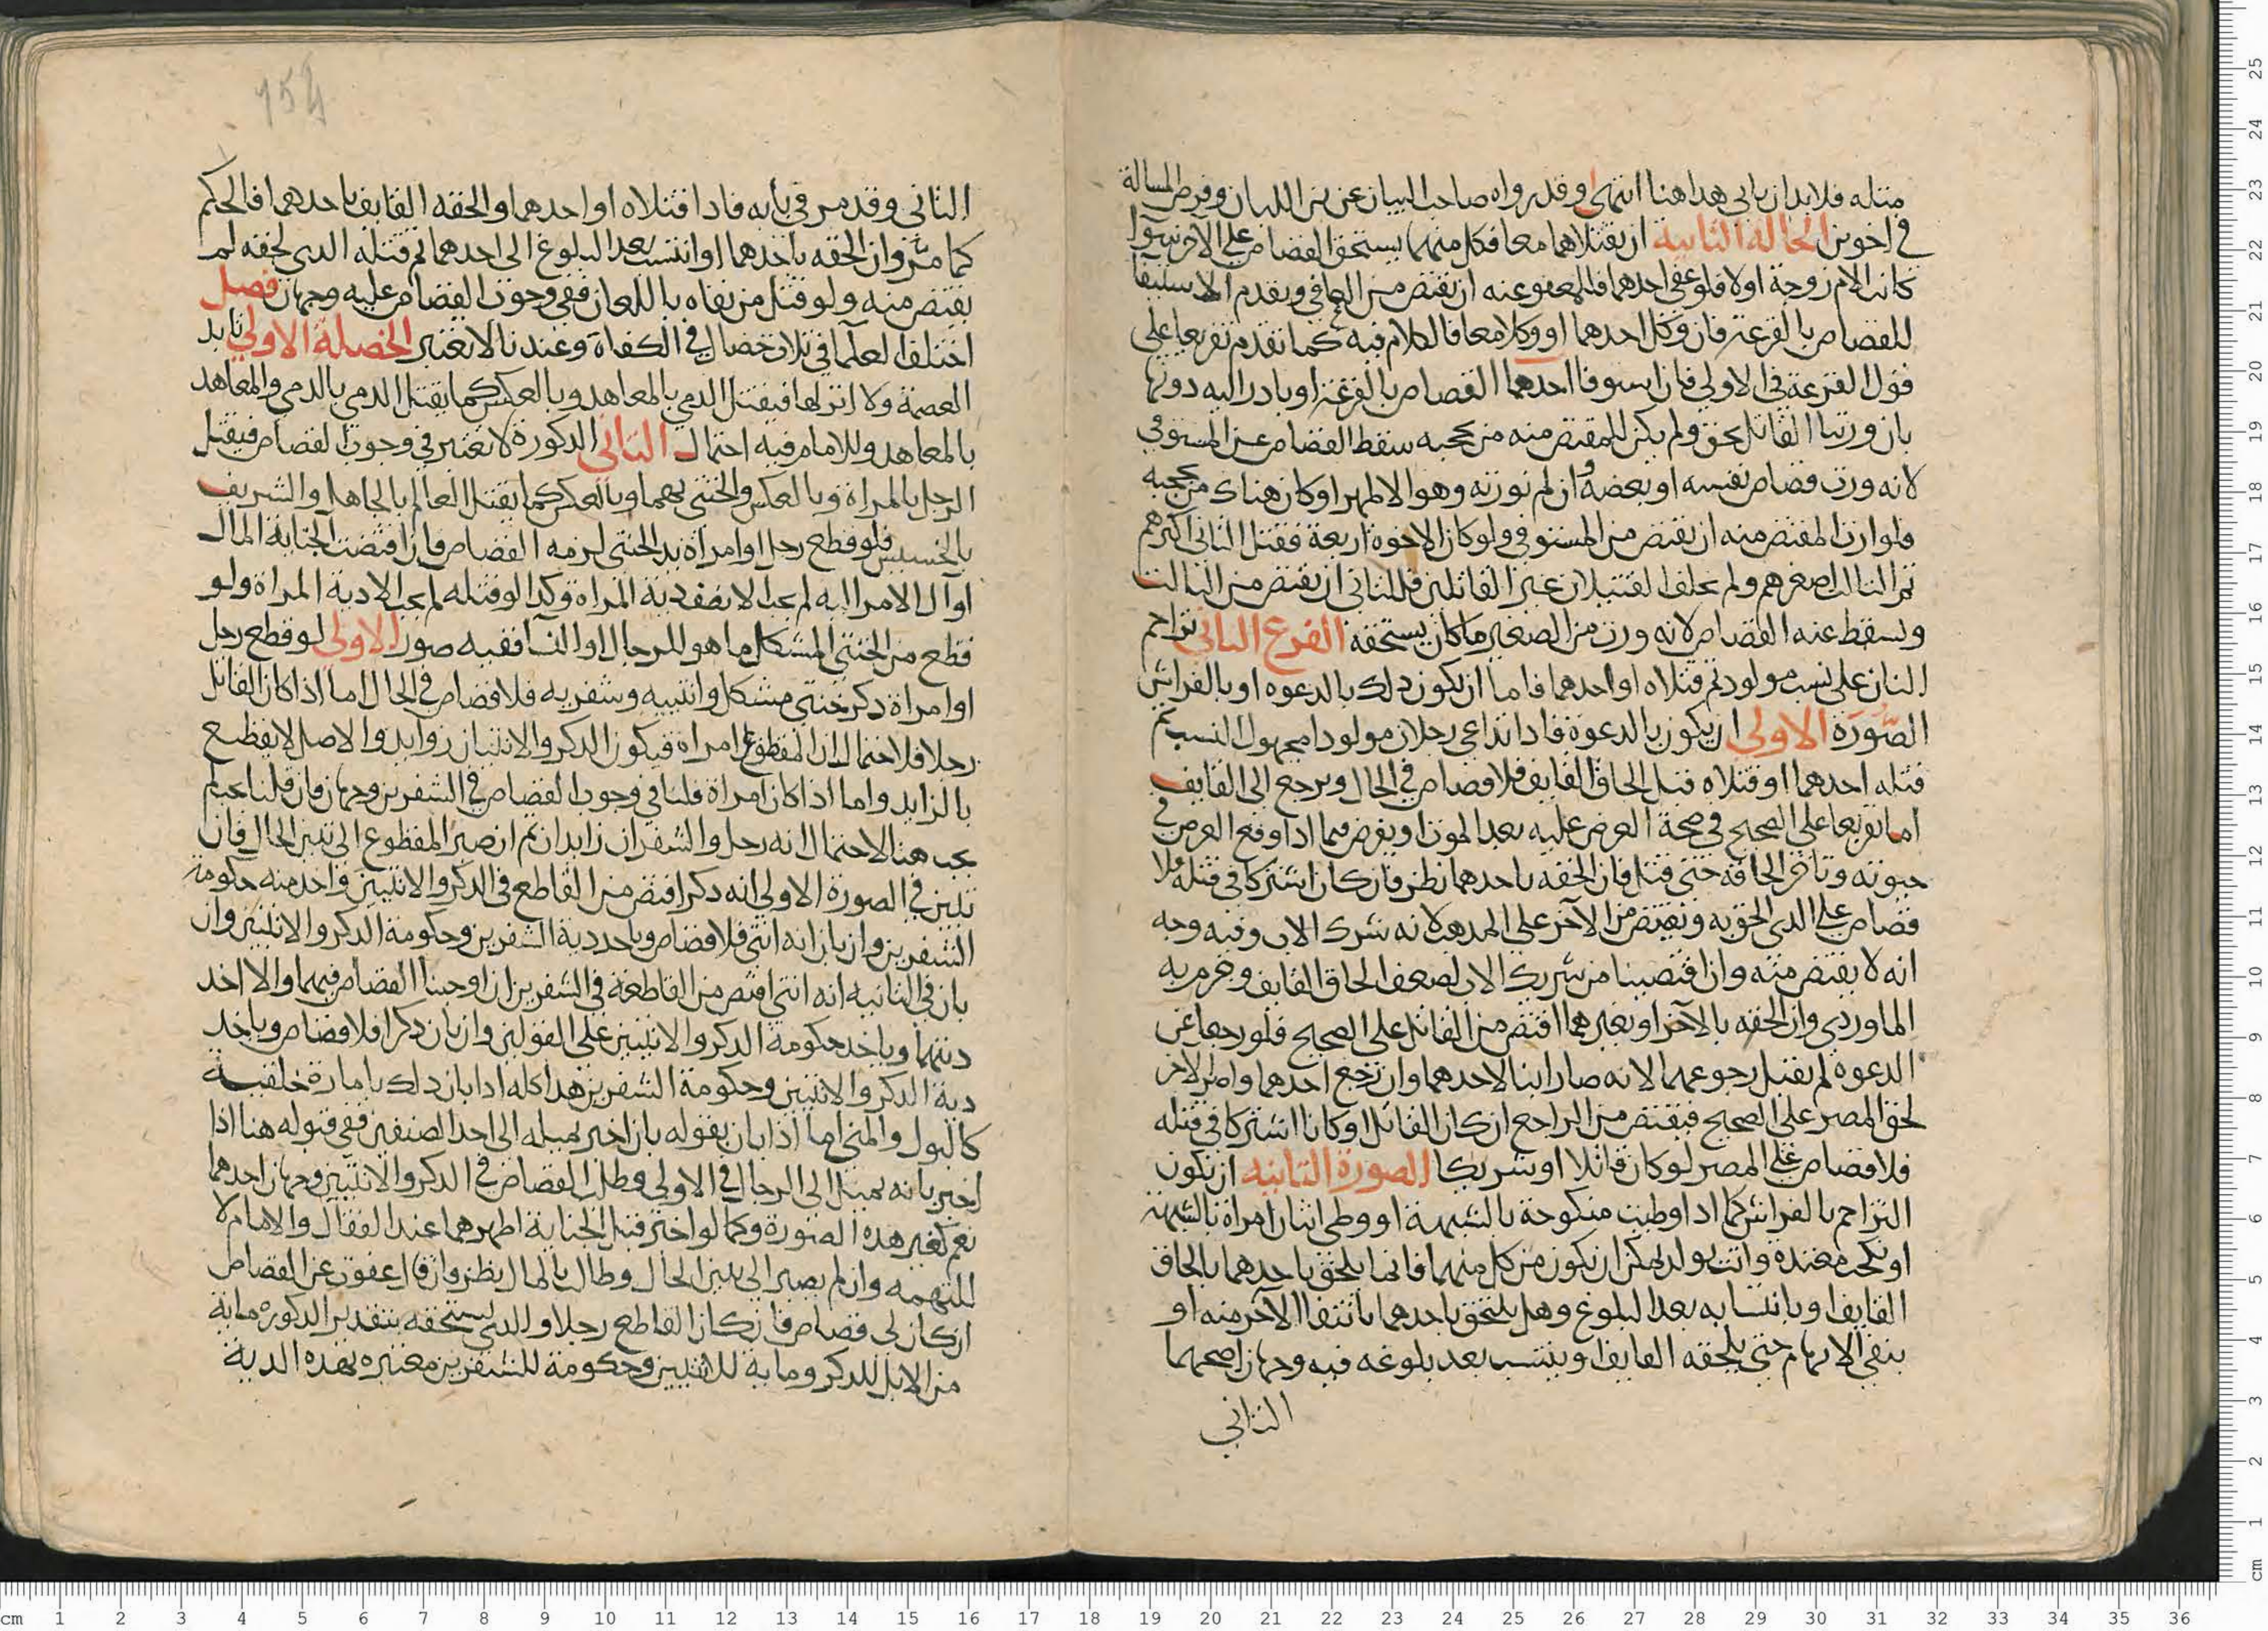 مثله فلابد ان ياتي هذا هنا انتهى وقد رواه صاحب البيان عن ابن اللبان وفرض المسالة
في اخوين الحالة الثانية ان يقتلاهما معا فكل منهما يستحق القصاص على الآخر سوا
كانت الام زوجة اولا فلو عفى احدهما فللمعفو عنه ان يقتص من العافي ويقدم
للقصاص بالقرعة فان وكل احدهما او وكلا معا فالكلام فيه كما تقدم تفريعا على
قول القرعة في الاولى فان استوفا احدهما القصاص بالقرعة او بادر اليه دونها
بان ورثنا القاتل بحق ولم يكن للمقتص منه من يحجبه سقط القصاص عن المستوفي
لانه ورث قصاص نفسه او بعضه وان لم نورثه وهو الاظهر او كان هناك من يحجبه
فلوارث المقتص منه ان يقتص من المستوفي ولو كان الاخوة اربعة فقتل الثاني اكبرهم
ثم الثالث اصغرهم ولم يخلف القتيلان غير القاتلين فللثاني ان يقتص من الثالث
ويسقط عنه القصاص لانه ورث من الصغير ما كان يستحقه الفرع الثاني تزاحم
اثنان على نسب مولود ثم قتلاه او احدهما فاما ان يكون ذلك بالدعوه او بالفراش
الصورة الاولى ان يكون بالدعوة فاذا تداعى رجلان مولودا مجهول النسب ثم
قتله احدهما او قتلاه قبل الحاق القايف فلا قصاص في الحال ويرجع الى القايف
اما تفريعا على الصحيح في صحة العرض عليه بعد الموت او يفرض فيما اذا وقع العرض في
حيوته وتاخر الحاقه حتى قتل فان الحقه باحدهما نظر فان كان اشتركا في قتله فلا
قصاص على الذي الحق به ويقتص من الآخر على المذهب لانه شرك الاب وفيه وجه
انه لا يقتص منه وان اقتصينا من شريك الاب لضعف الحاق القايف وجزم به
الماوردي وان الحقه بالآخر او بغيرهما اقتص من القاتل على الصحيح فلو رجعا عن
الدعوه لم يقبل رجوعهما لانه صار ابنا لاحدهما وان رجع احدهما واصر الاخر
لحق المصر على الصحيح فيقتص من الراجع ان كان القاتل او كانا اشتركا في قتله
فلا قصاص على المصر لو كان قاتلا او شريكا الصورة الثانيه ان يكون
التزاحم بالفراش كما اذا وطيت منكوحة بالشبهة او وطي اثنان امراة بالشبهة
او نكحت معتده واتت بولد يمكن ان يكون من كل منهما فانما يلحق باحدهما بالحاق
القايف او بانتسابه بعد البلوغ وهل يلتحق باحدهما بانتفا الآخر منه او
ينفي الابهام حتى يلحقه القايف او ينتسب بعد بلوغه فيه وجهان اصحهما
الثاني
154
الثاني وقد مر في بابه فاذا قتلاه او احدهما والحقه القايف باحدهما فالحكم
كما مر وان الحقه باحدهما او انتسب بعد البلوغ الى احدهما ثم قتله الذي لحقه لم
يقتص منه ولو قتل من نفاه باللعان ففي وجوب القصاص عليه وجهان فصل
اختلف العلما في ثلاث خصال في الكفاة وعندنا لا تعتبر الخصلة الاولى تابد
العصمة ولا اثر لها فيقتل الذمي بالمعاهد وبالعكس كما يقتل الذمي بالذمي والمعاهد
بالمعاهد وللامام فيه احتمال الثاني الذكورة لا تعتبر في وجوب القصاص فيقتل
الرجل بالمراة وبالعكس والخنثى بهما وبالعكس كما يقتل العالم بالجاهل والشريف
بالخسيس فلو قطع رجل او امراة يد الخنثى لزمه القصاص فان اقتضت الجناية المال
او آل الامر اليه لم يجب الا نصف دية المراة وكذا لو قتله لم يجب الا دية المراة ولو
قطع من الخنثى المشكل ما هو للرجال او النسا ففيه صور الاولى لو قطع رجل
او امراة ذكر خنثى مشكل وانثييه وشفريه فلا قصاص في الحال اما اذا كان القاتل
رجلا فلاحتمال ان المقطوع امراة فيكون الذكر والانثيان زوايد والاصل لا يقطع
بالزايد واما اذا كان امراة فلنا في وجوب القصاص في الشفرين وجهان فان قلنا
يجب هنا لاحتمال انه رجل والشفران زايدان ثم ان صبر المقطوع الى تبين الحال فان
تبين في الصورة الاولى انه ذكر اقتص من القاطع في الذكر والانثيين واخذ منه حكومة
الشفرين وان بان انه انثى فلا قصاص وياخذ دية الشفرين وحكومة الذكر والانثيين وان
بان في الثانيه انه انثى اقتص من القاطعة في الشفرين ان اوجبنا القصاص فيهما والا اخذ
ديتهما وياخذ حكومة الذكر والانثيين على القولين وان بان ذكرا فلا قصاص وياخذ
دية الذكر والانثيين وحكومة الشفرين هذا كله اذا بان ذلك بامارة خلقية
كالبول والمني اما اذا بان بقوله بان اخبر بميله الى احد الصنفين ففي قبوله هنا اذا
اخبر بانه يميل الى الرجال في الاولى وطلب القصاص في الذكر والانثيين وجهان احدهما
نعم كغير هذه الصورة وكما لو اخبر قبل الجناية اظهرهما عند القفال والامام لا
للتهمه وان لم يصبر الى تبين الحال وطال بالمال نظر وان قال عفوت عن القصاص
ان كان لي قصاص فان كان القاطع رجلا والذي يستحقه بتقدير الذكورة ماية
من الابل للذكر وماية للانثيين وحكومة للشفرين معتبره بهذه الدية